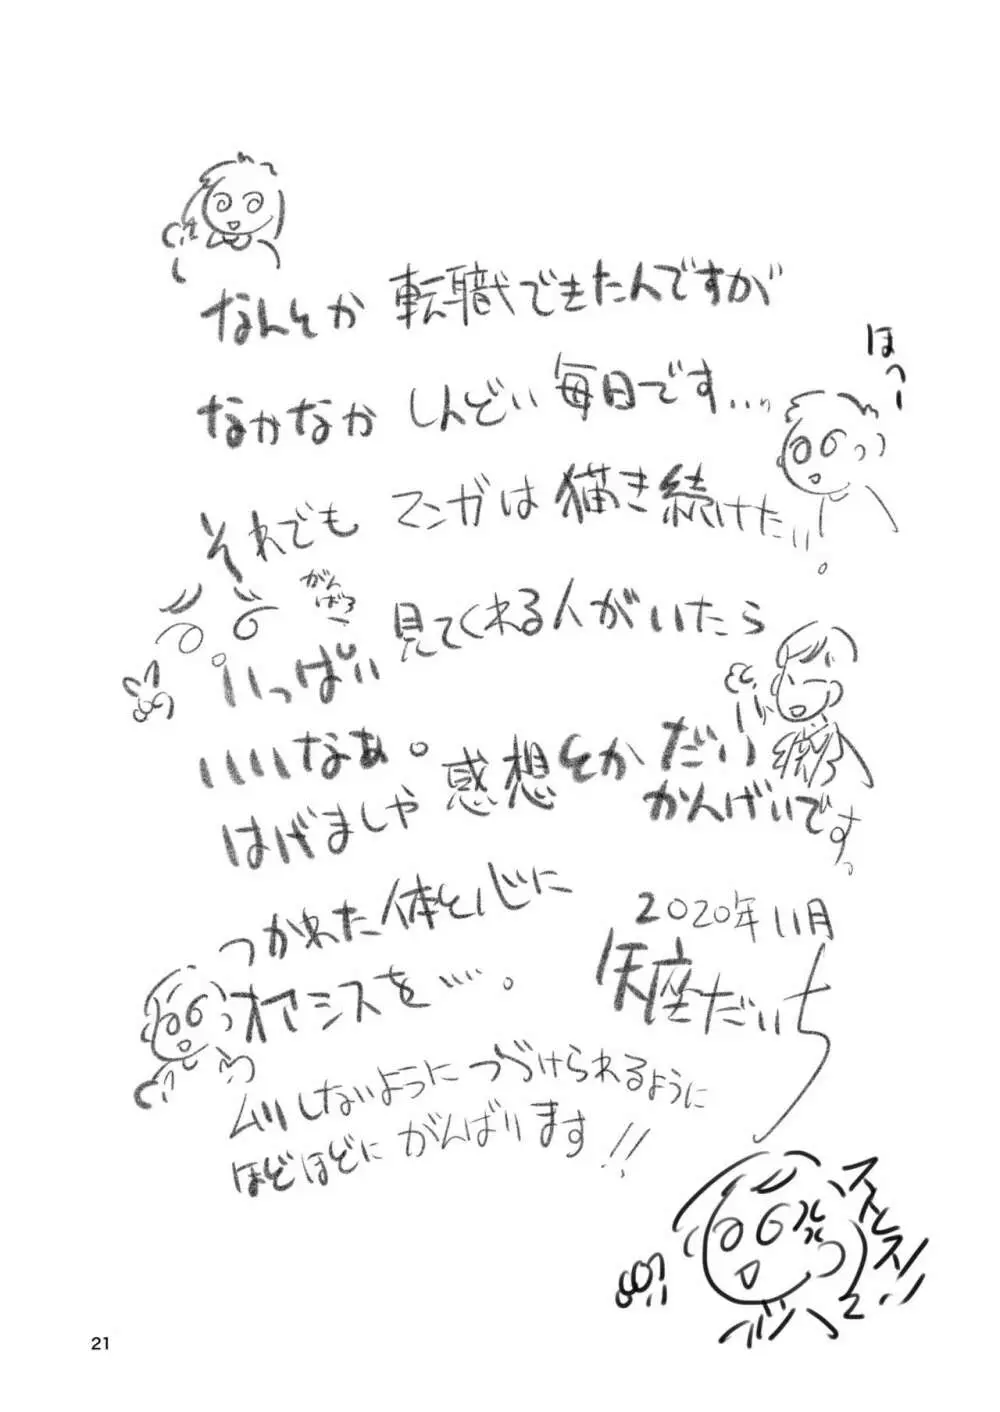 なんとか 転職できたんですが
ほっー
なかなか しんどい 毎日です...
それでも マンガは 描き続けたい。
がんばろー
見てくれる人がいたら
いっぱい
いいなぁ。
はげましや 感想とか だい
かんげいです。
つかれた 体と心に
オアシスを....。
2020年 11月
矢座だいち
ムリしないように つづけられるように
ほどほどに がんばります!!
21